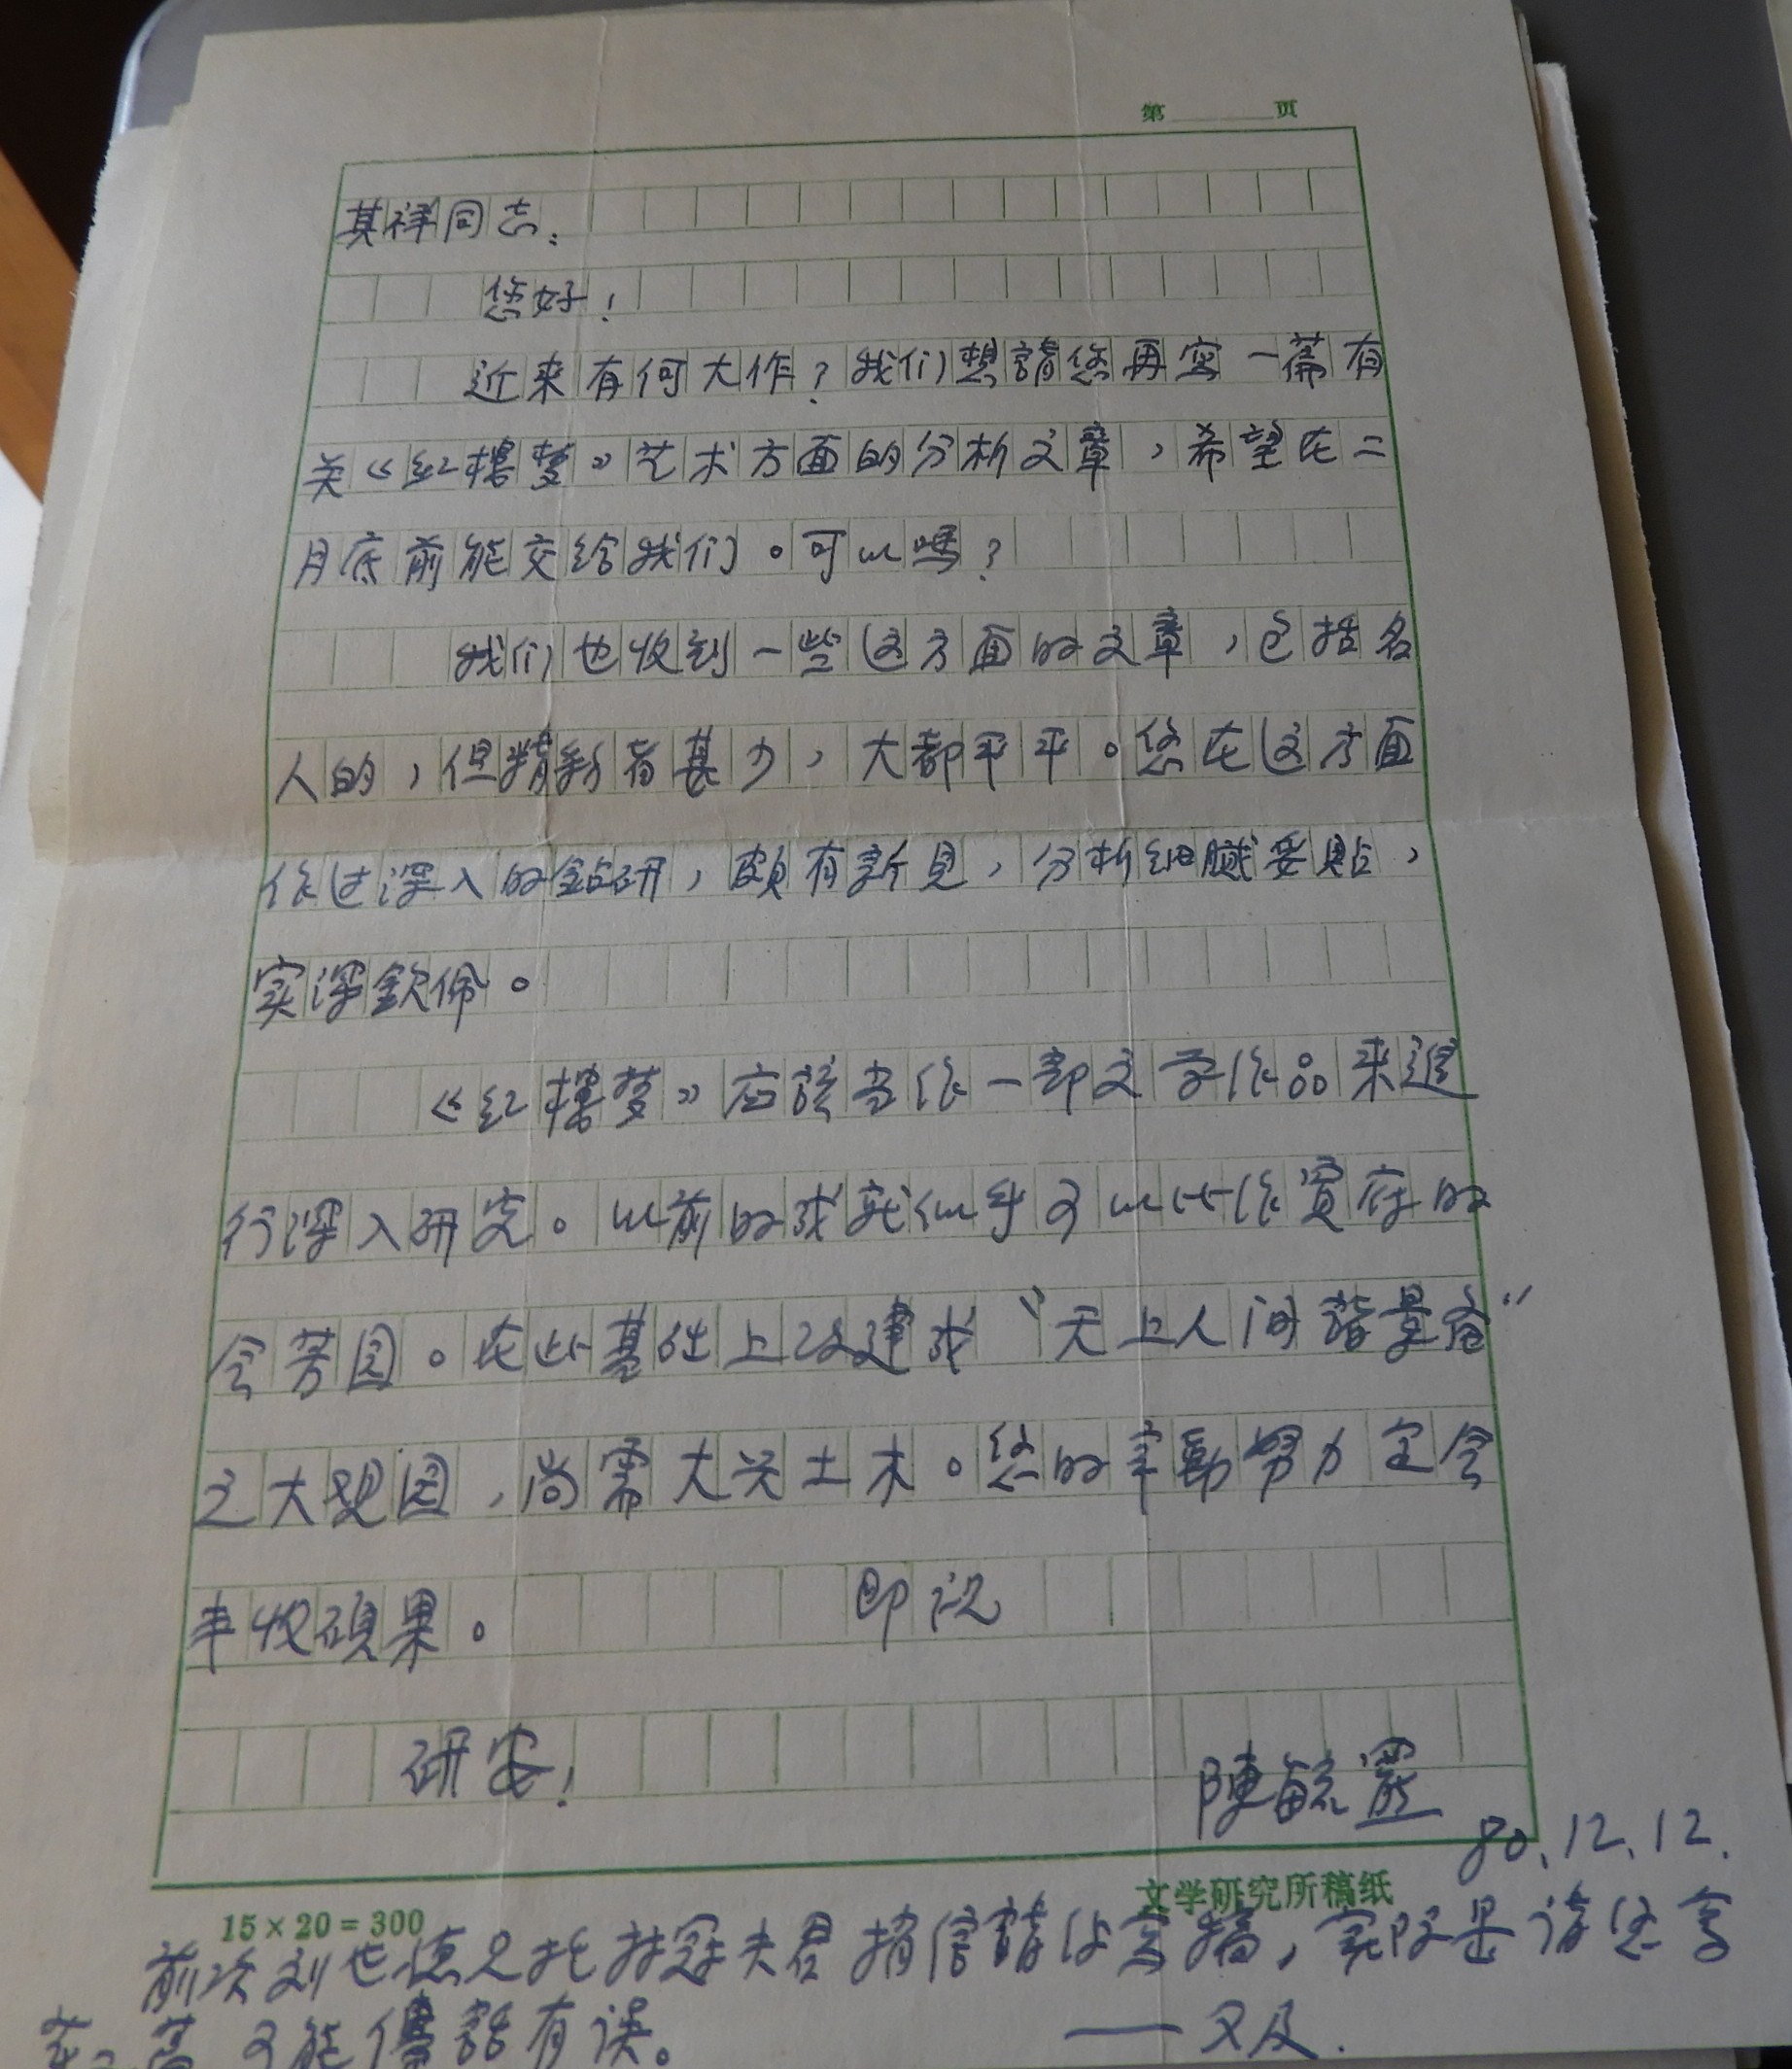 第 页
其祥同志：
您好！
近来有何大作？我们想請您再写一篇有
关《红楼梦》艺术方面的分析文章，希望在二
月底前能交给我们。可以嗎？
我们也收到一些这方面的文章，包括名
人的，但精彩者甚少，大都平平。您在这方面
作过深入的钻研，颇有新見，分析细腻妥貼，
实深欽佩。
《红楼梦》应該当作一部文学作品来進
行深入研究。以前的成就似乎可以比作寳府的
会芳园。在此基础上改建成“天上人间諸景备”
之大观园，尚需大兴土木。您的辛勤努力定会
丰收硕果。 即祝
研安！
陳毓罴
80.12.12.
15×20=300 文学研究所稿纸
前次刘世德兄托林冠夫君捎信請你写稿，实际是请您写
第二篇 可能傳話有误。 ——又及.